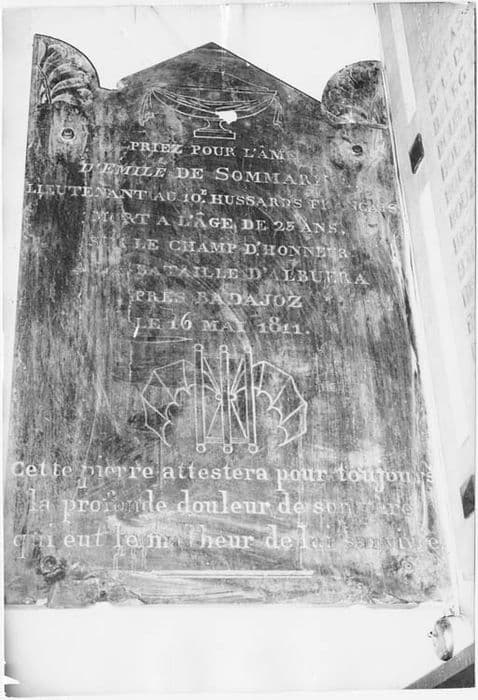 PRIEZ POUR L'ÂM
D'EMILE DE SOMMAR
LIEUTENANT AU 10.E HUSSARDS
MORT A L'ÂGE DE 25 ANS.
SUR LE CHAMP D'HONNEUR
BATAILLE D'ALBUERA
PRÉS BADAJOZ
LE 16 MAI 1811.
Cette pierre attestera pour toujours
la profonde douleur de son père
qui eut le malheur de lui survivre